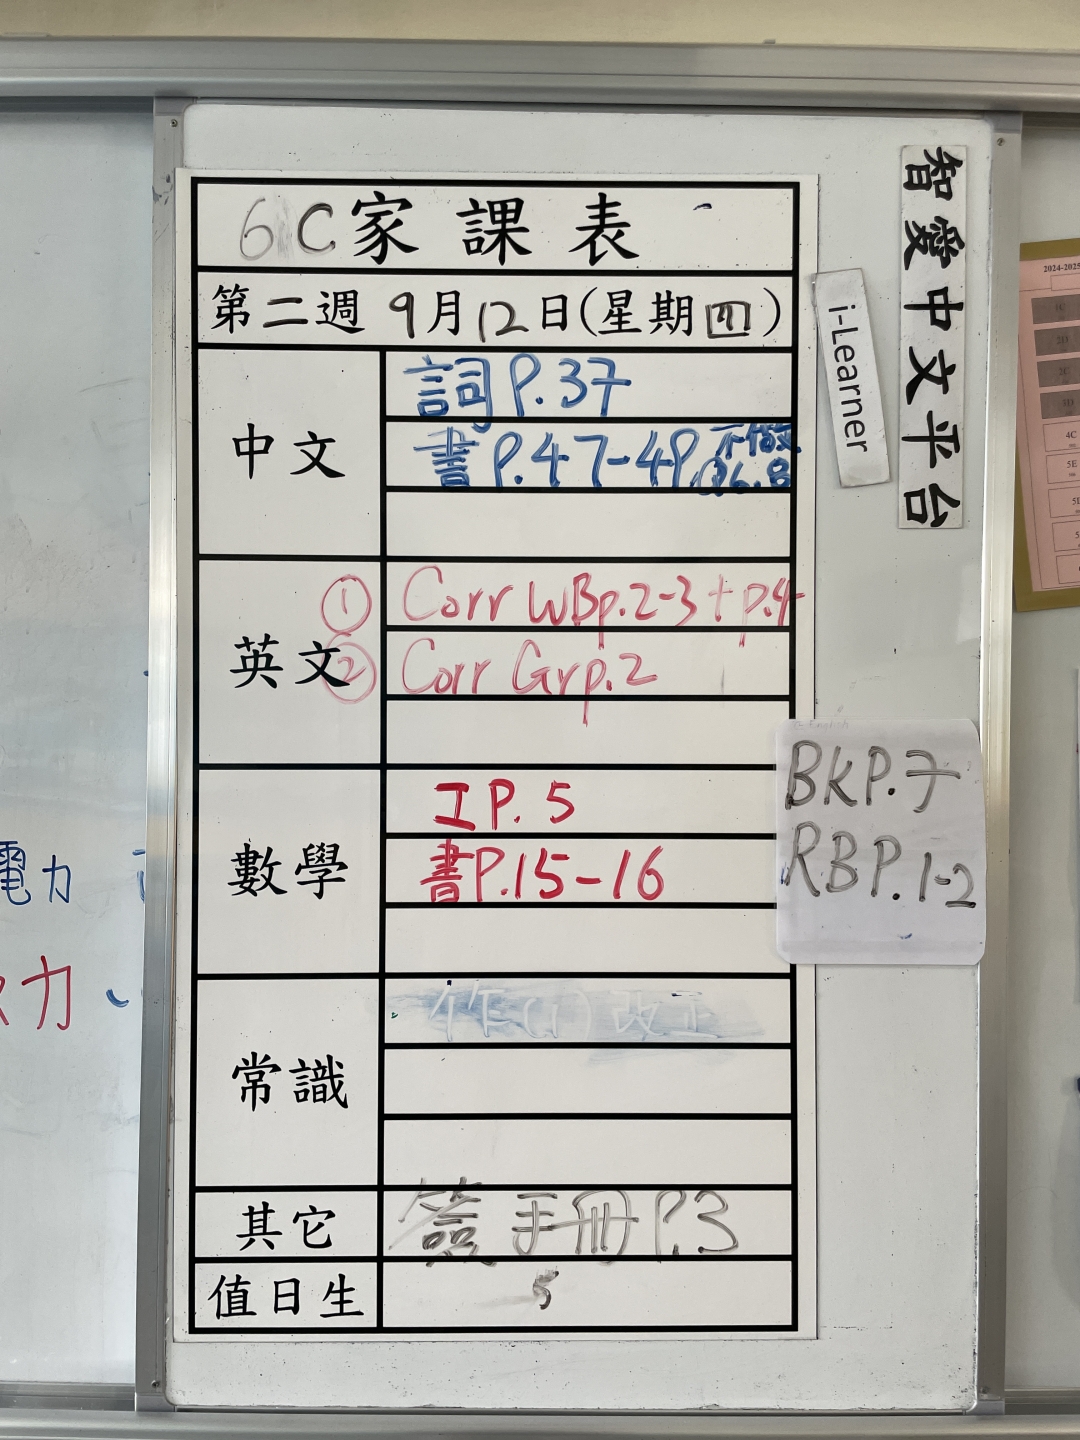 6C家課表
第二週 9月12日(星期四)
中文
詞P.37
書P.47-49 不做
Q6.8
英文
① Corr WBp.2-3 + p.4
② Corr Grp.2
數學
工P.5
書P.15-16
常識
作(1)改正
其它
簽手冊P.3
值日生
5
智愛中文平台
i-Learner
BKP.7
RBP.1-2
電力
力
2024-2025
4C
5E